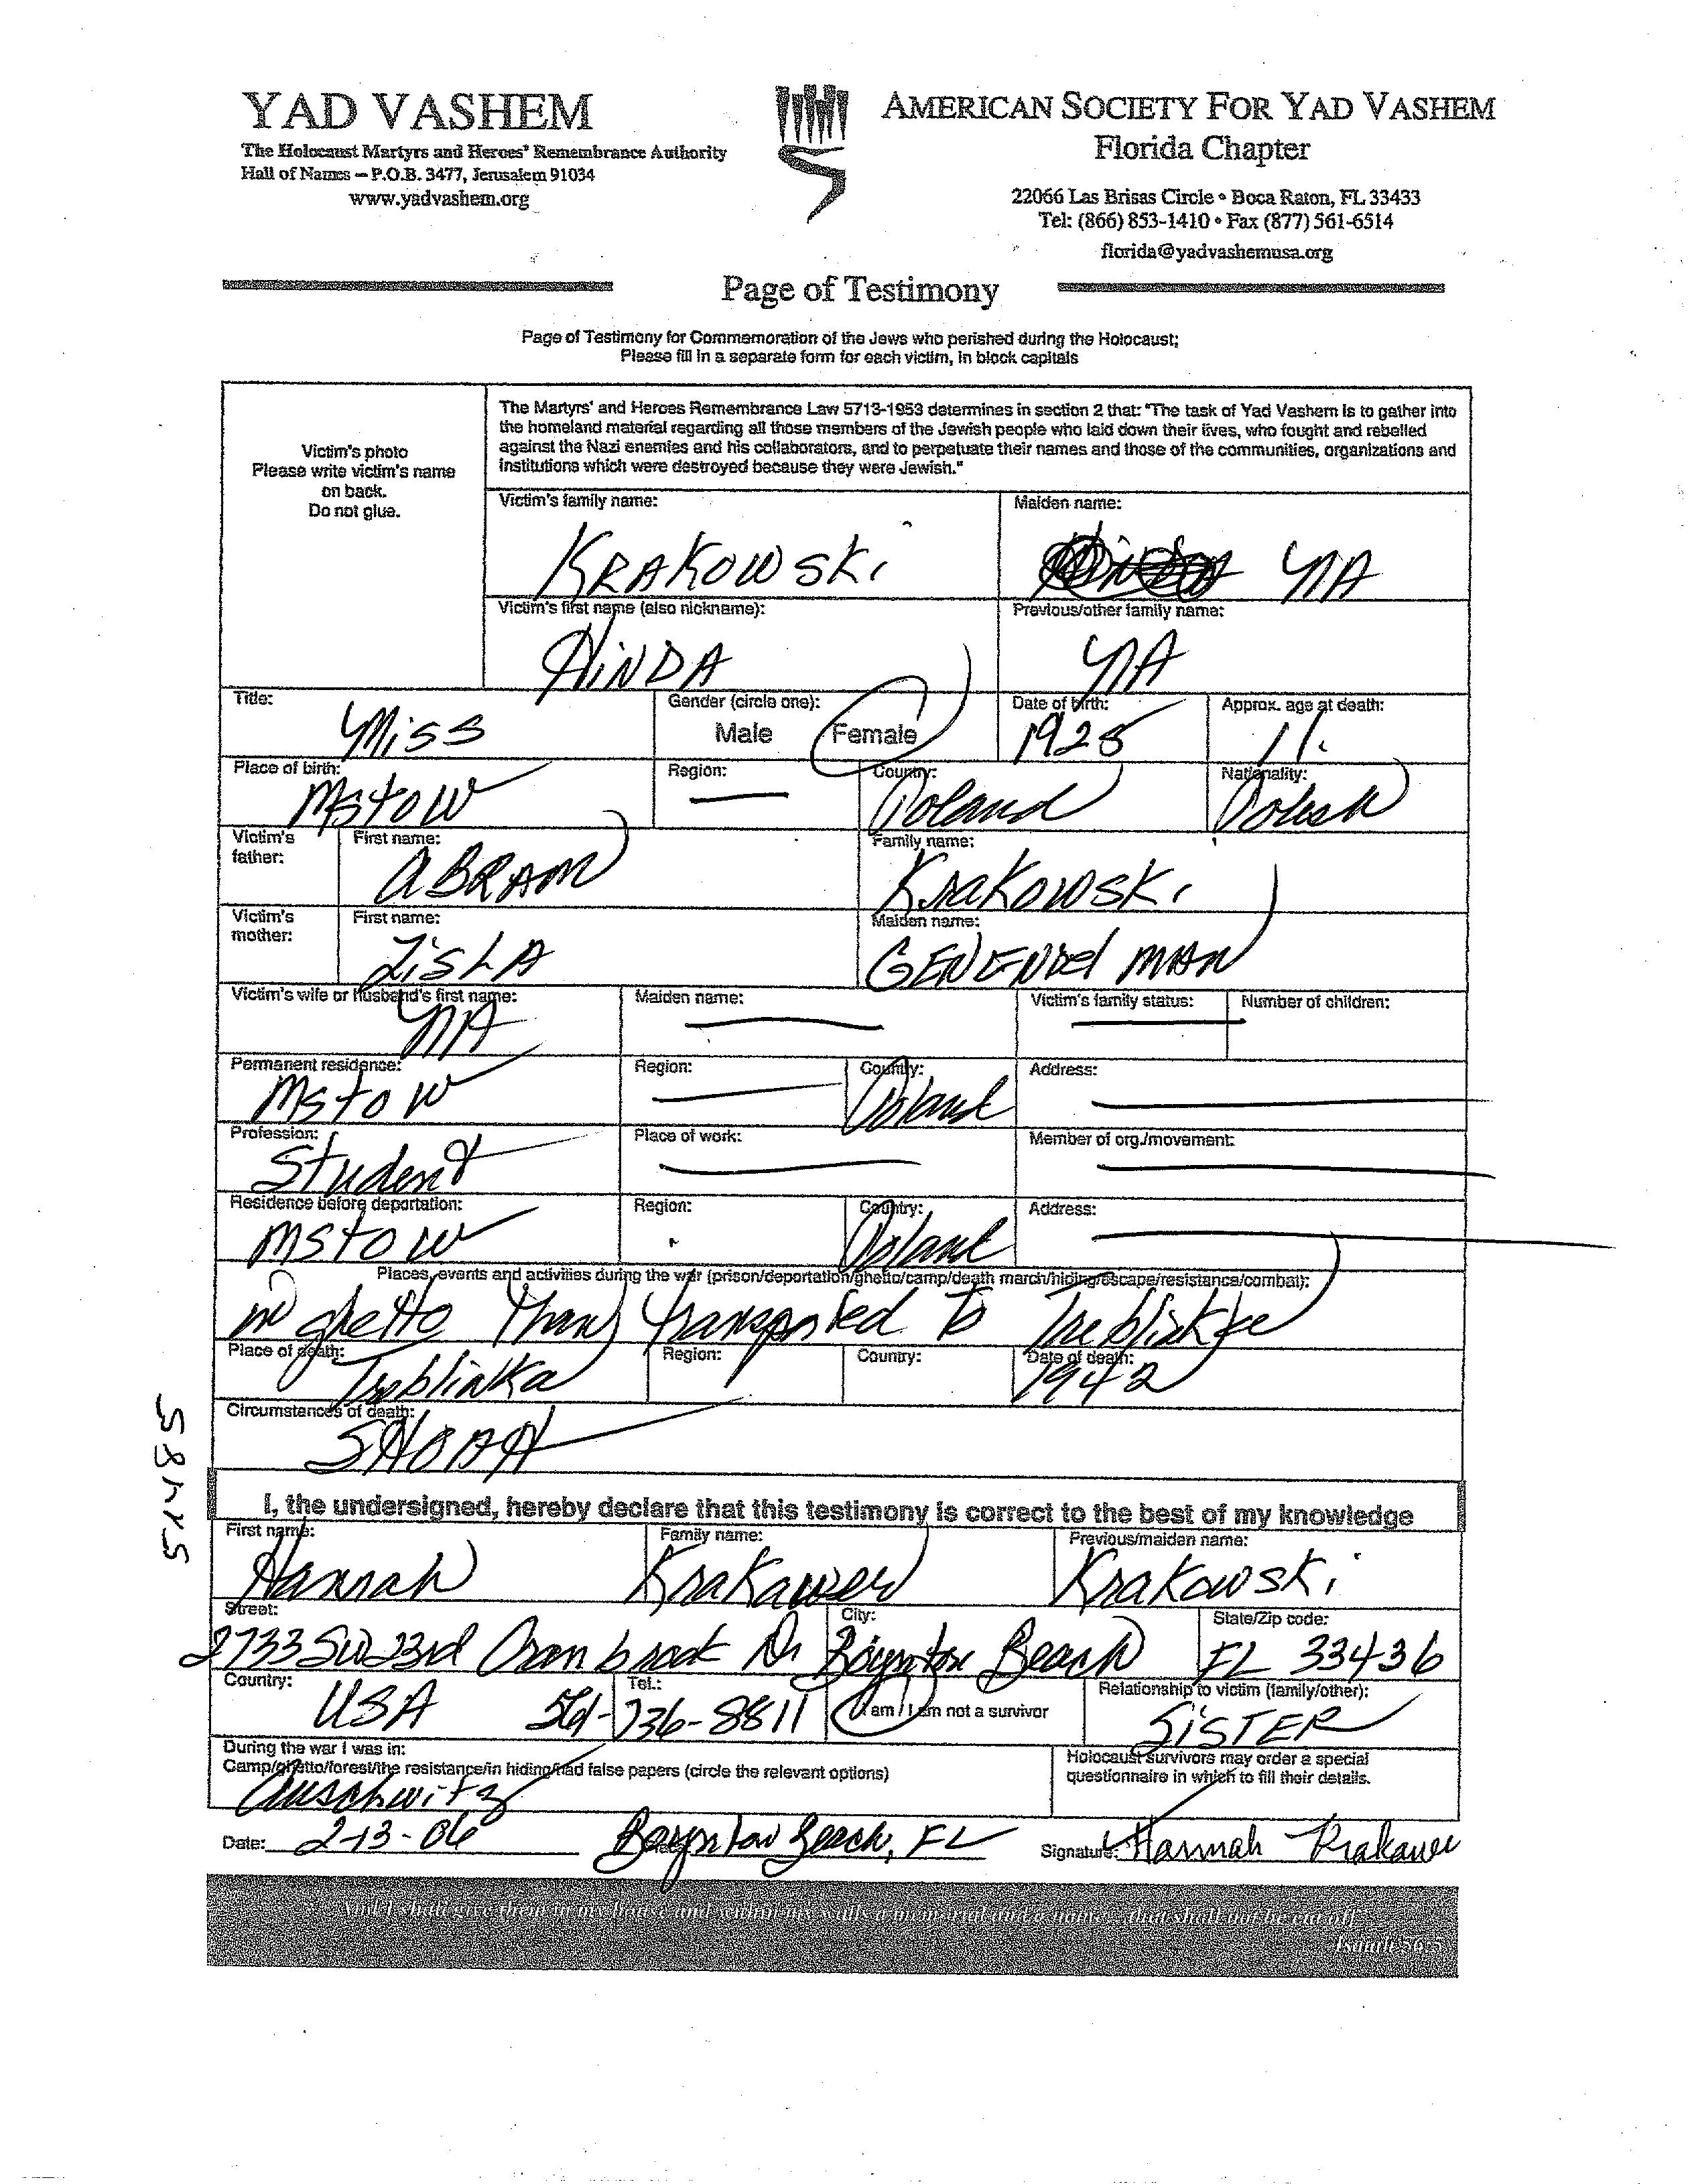 YAD VASHEM
The Holocaust Martyrs and Heroes' Remembrance Authority
Hall of Names – P.O.B. 3477, Jerusalem 91034
www.yadvashem.org
AMERICAN SOCIETY FOR YAD VASHEM
Florida Chapter
22066 Las Brisas Circle • Boca Raton, FL 33433
Tel: (866) 853-1410 • Fax (877) 561-6514
florida@yadvashemusa.org
Page of Testimony
Page of Testimony for Commemoration of the Jews who perished during the Holocaust;
Please fill in a separate form for each victim, in block capitals
Victim's photo
Please write victim's name
on back.
Do not glue.
The Martyrs' and Heroes Remembrance Law 5713-1953 determines in section 2 that: "The task of Yad Vashem is to gather into
the homeland material regarding all those members of the Jewish people who laid down their lives, who fought and rebelled
against the Nazi enemies and his collaborators, and to perpetuate their names and those of the communities, organizations and
institutions which were destroyed because they were Jewish."
Victim's family name: Maiden name:
KRAKOWSKi NA
Victim's first name (also nickname): Previous/other family name:
HiNDA NA
Title: Gender (circle one): Date of birth: Approx. age at death:
Miss Male Female 11.
Place of birth: Region: Country: Nationality:
Mstow — Poland Polish
Victim's father: First name: Family name:
ABRAM Krakowski
Victim's mother: First name: Maiden name:
ZiSLA GENENDel MAN
Victim's wife or husband's first name: Maiden name: Victim's family status: Number of children:
NA
Permanent residence: Region: Country: Address:
Mstow Poland
Profession: Place of work: Member of org./movement:
Student
Residence before deportation: Region: Country: Address:
Mstow Poland
Places, events and activities during the war (prison/deportation/ghetto/camp/death march/hiding/escape/resistance/combat):
in ghetto transported to
Place of death: Region: Country: Date of death:
Treblinka 1942
Circumstances of death:
SHOAH
58485
I, the undersigned, hereby declare that this testimony is correct to the best of my knowledge
First name: Family name: Previous/maiden name:
Hannah Krakauer Krakowski
Street: City: State/Zip code:
2733 SW 23rd Cranbrook Dr Boynton Beach FL 33436
Country: Tel.: I am / I am not a survivor Relationship to victim (family/other):
USA 561-736-8811 SiSTER
During the war I was in:
Camp/ghetto/forest/the resistance/in hiding/had false papers (circle the relevant options)
Auschwitz
Holocaust survivors may order a special
questionnaire in which to fill their details.
Date: 2-13-06 Boynton Beach, FL Signature: Hannah Krakauer
And I shall give them in my house and within my walls a memorial and a name... that shall not be cut off
Isaiah 56:5